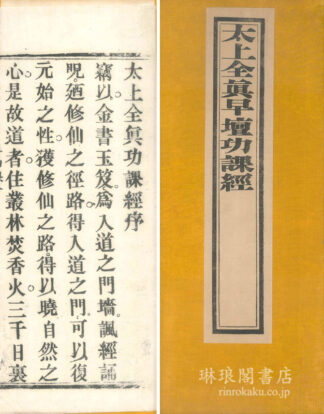 太上全眞早壇功課經
太上全眞功課經序
竊以金書玉笈爲入道之門墻諷經誦
呪廼修仙之徑路得入道之門可以復
元始之性獲修仙之路得以曉自然之
心是故道者住叢林焚香火三千日裏
琳琅閣書店
rinrokaku.co.jp